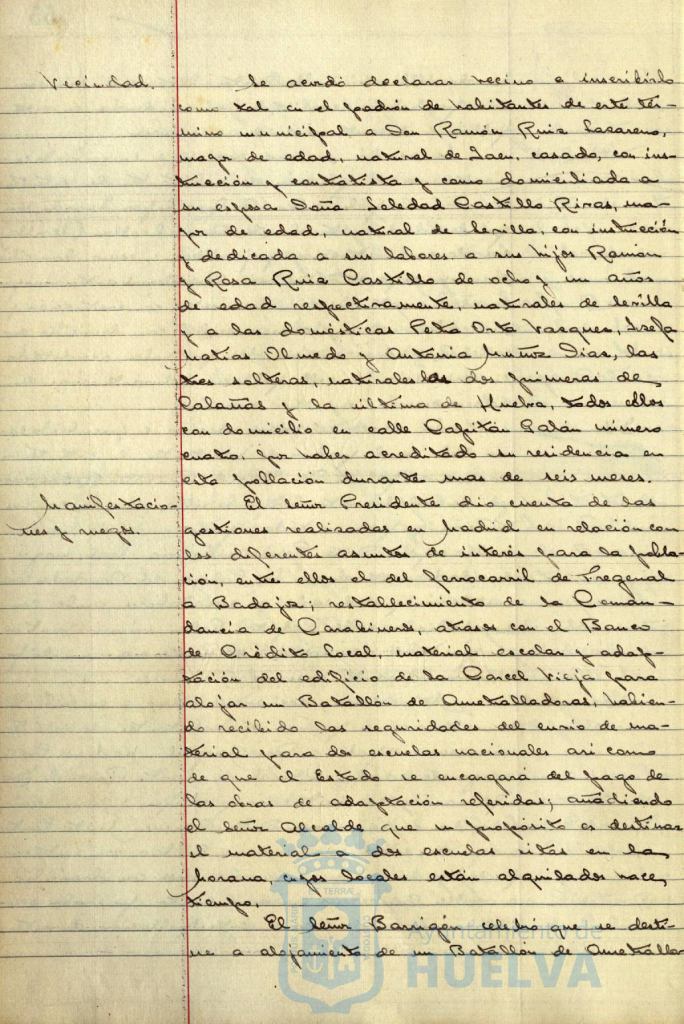 Vecindad.
Se acordó declarar vecino e inscribirlo
como tal en el padrón de habitantes de este tér-
mino municipal a Don Ramón Ruiz Lazareno,
mayor de edad, natural de Jaen, casado, con ins-
trucción y contratista y como domiciliada a
su esposa Doña Soledad Castillo Rivas, ma-
yor de edad, natural de Sevilla, con instrucción
y dedicada a sus labores a sus hijos Ramón
y Rosa Ruiz Castillo de ocho y un años
de edad respectivamente, naturales de Sevilla
y a las domésticas Petra Orta Vazques, Josefa
Matias Olmedo y Antonia Muñoz Dias, las
tres solteras, naturales las dos primeras de
Calañas y la última de Huelva, todos ellos
con domicilio en calle Capitán Galán número
cuatro, por haber acreditado su residencia en
esta población durante mas de seis meses.
Manifestacio-
nes y ruegos.
El Señor Presidente dio cuenta de las
gestiones realizadas en Madrid en relación con
los diferentes asuntos de interés para la pobla-
ción, entre ellos el del ferrocarril de Fregenal
a Badajoz; restablecimiento de la Coman-
dancia de Carabineros, atrasos con el Banco
de Crédito Local, material escolar y adap-
tación del edificio de la Carcel Vieja para
alojar un Batallón de Ametralladoras, habien-
do recibido las seguridades del envio de ma-
terial para dos escuelas nacionales asi como
de que el Estado se encargará del pago de
las obras de adaptación referidas; añadiendo
el Señor Alcalde que su propósito es destinar
el material a dos escuelas sitas en la
Morana, cuyos locales están alquilados hace
tiempo.
El Señor Barrigón celebró que se desti-
ne a alojamiento de un Batallón de Ametralla-
Ayuntamiento de
HUELVA